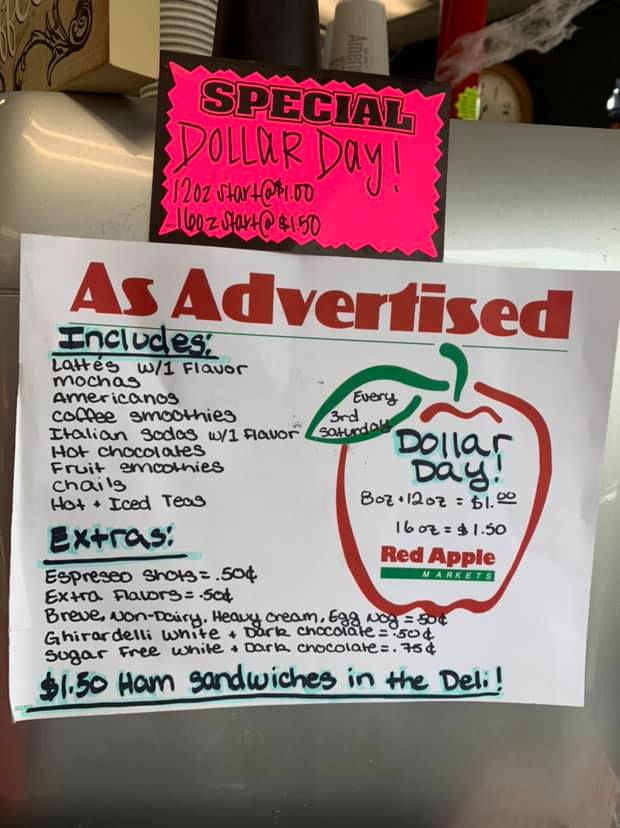 SPECIAL
DOLLAR DAY!
12oz start@$1.00
16oz start@ $1.50
As Advertised
Includes:
Lattés w/1 Flavor
mochas
Americanos
coffee smoothies
Italian Sodas w/1 Flavor
Hot chocolates
Fruit smoothies
chai's
Hot + Iced Teas
Every
3rd
Saturday
Dollar
Day!
8oz + 12oz = $1.00
16oz = $1.50
Red Apple
MARKETS
Extras:
Espresso Shots = .50¢
Extra Flavors = .50¢
Breve, Non-Dairy, Heavy cream, Egg Nog = 50¢
Ghirardelli White + Dark chocolate = .50¢
Sugar Free White + Dark chocolate = .75¢
$1.50 Ham Sandwiches in the Deli!